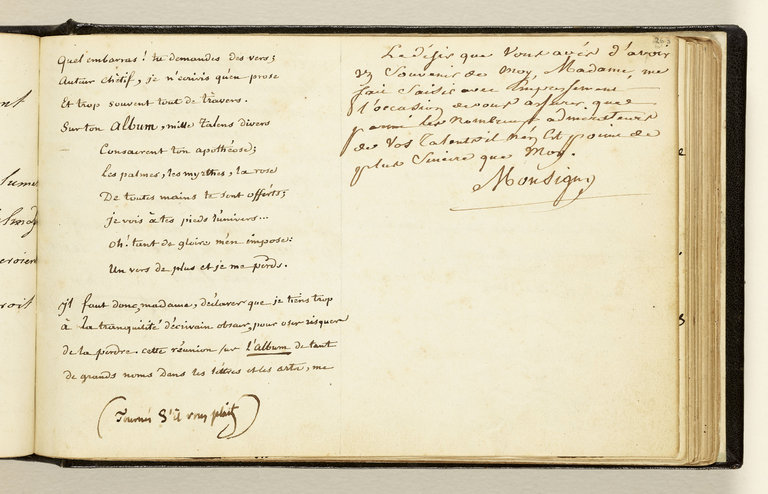 nt
lume
eroien
roit
Quel embarras ! tu demandes des vers;
Auteur chétif, je n'écrivis qu'en prose
Et trop souvent tout de travers.
Sur ton Album, mille talens divers
Consacrent ton apothéose;
Les palmes, les myrthes, la rose
De toutes mains te sont offerts;
je vois à tes pieds l'univers...
oh ! tant de gloire m'en impose:
Un vers de plus et je me perds.
il faut donc, madame, déclarer que je tiens trop
à la tranquilité d'écrivain obscur, pour oser risquer
de la perdre. cette réunion sur L'Album de tant
de grands noms dans les lettres et les arts, me
(Tournés S'il vous plait)
263
Le désir que Vous avés d'avoir
un Souvenir de Moy, Madame, me
fait Saisir avec Empressement
l'occasion de vous assurer que
parmi les nombreux admirateurs
de Vos Talents il n'en Est point de
plus Sincere que Moy.
Monsigny